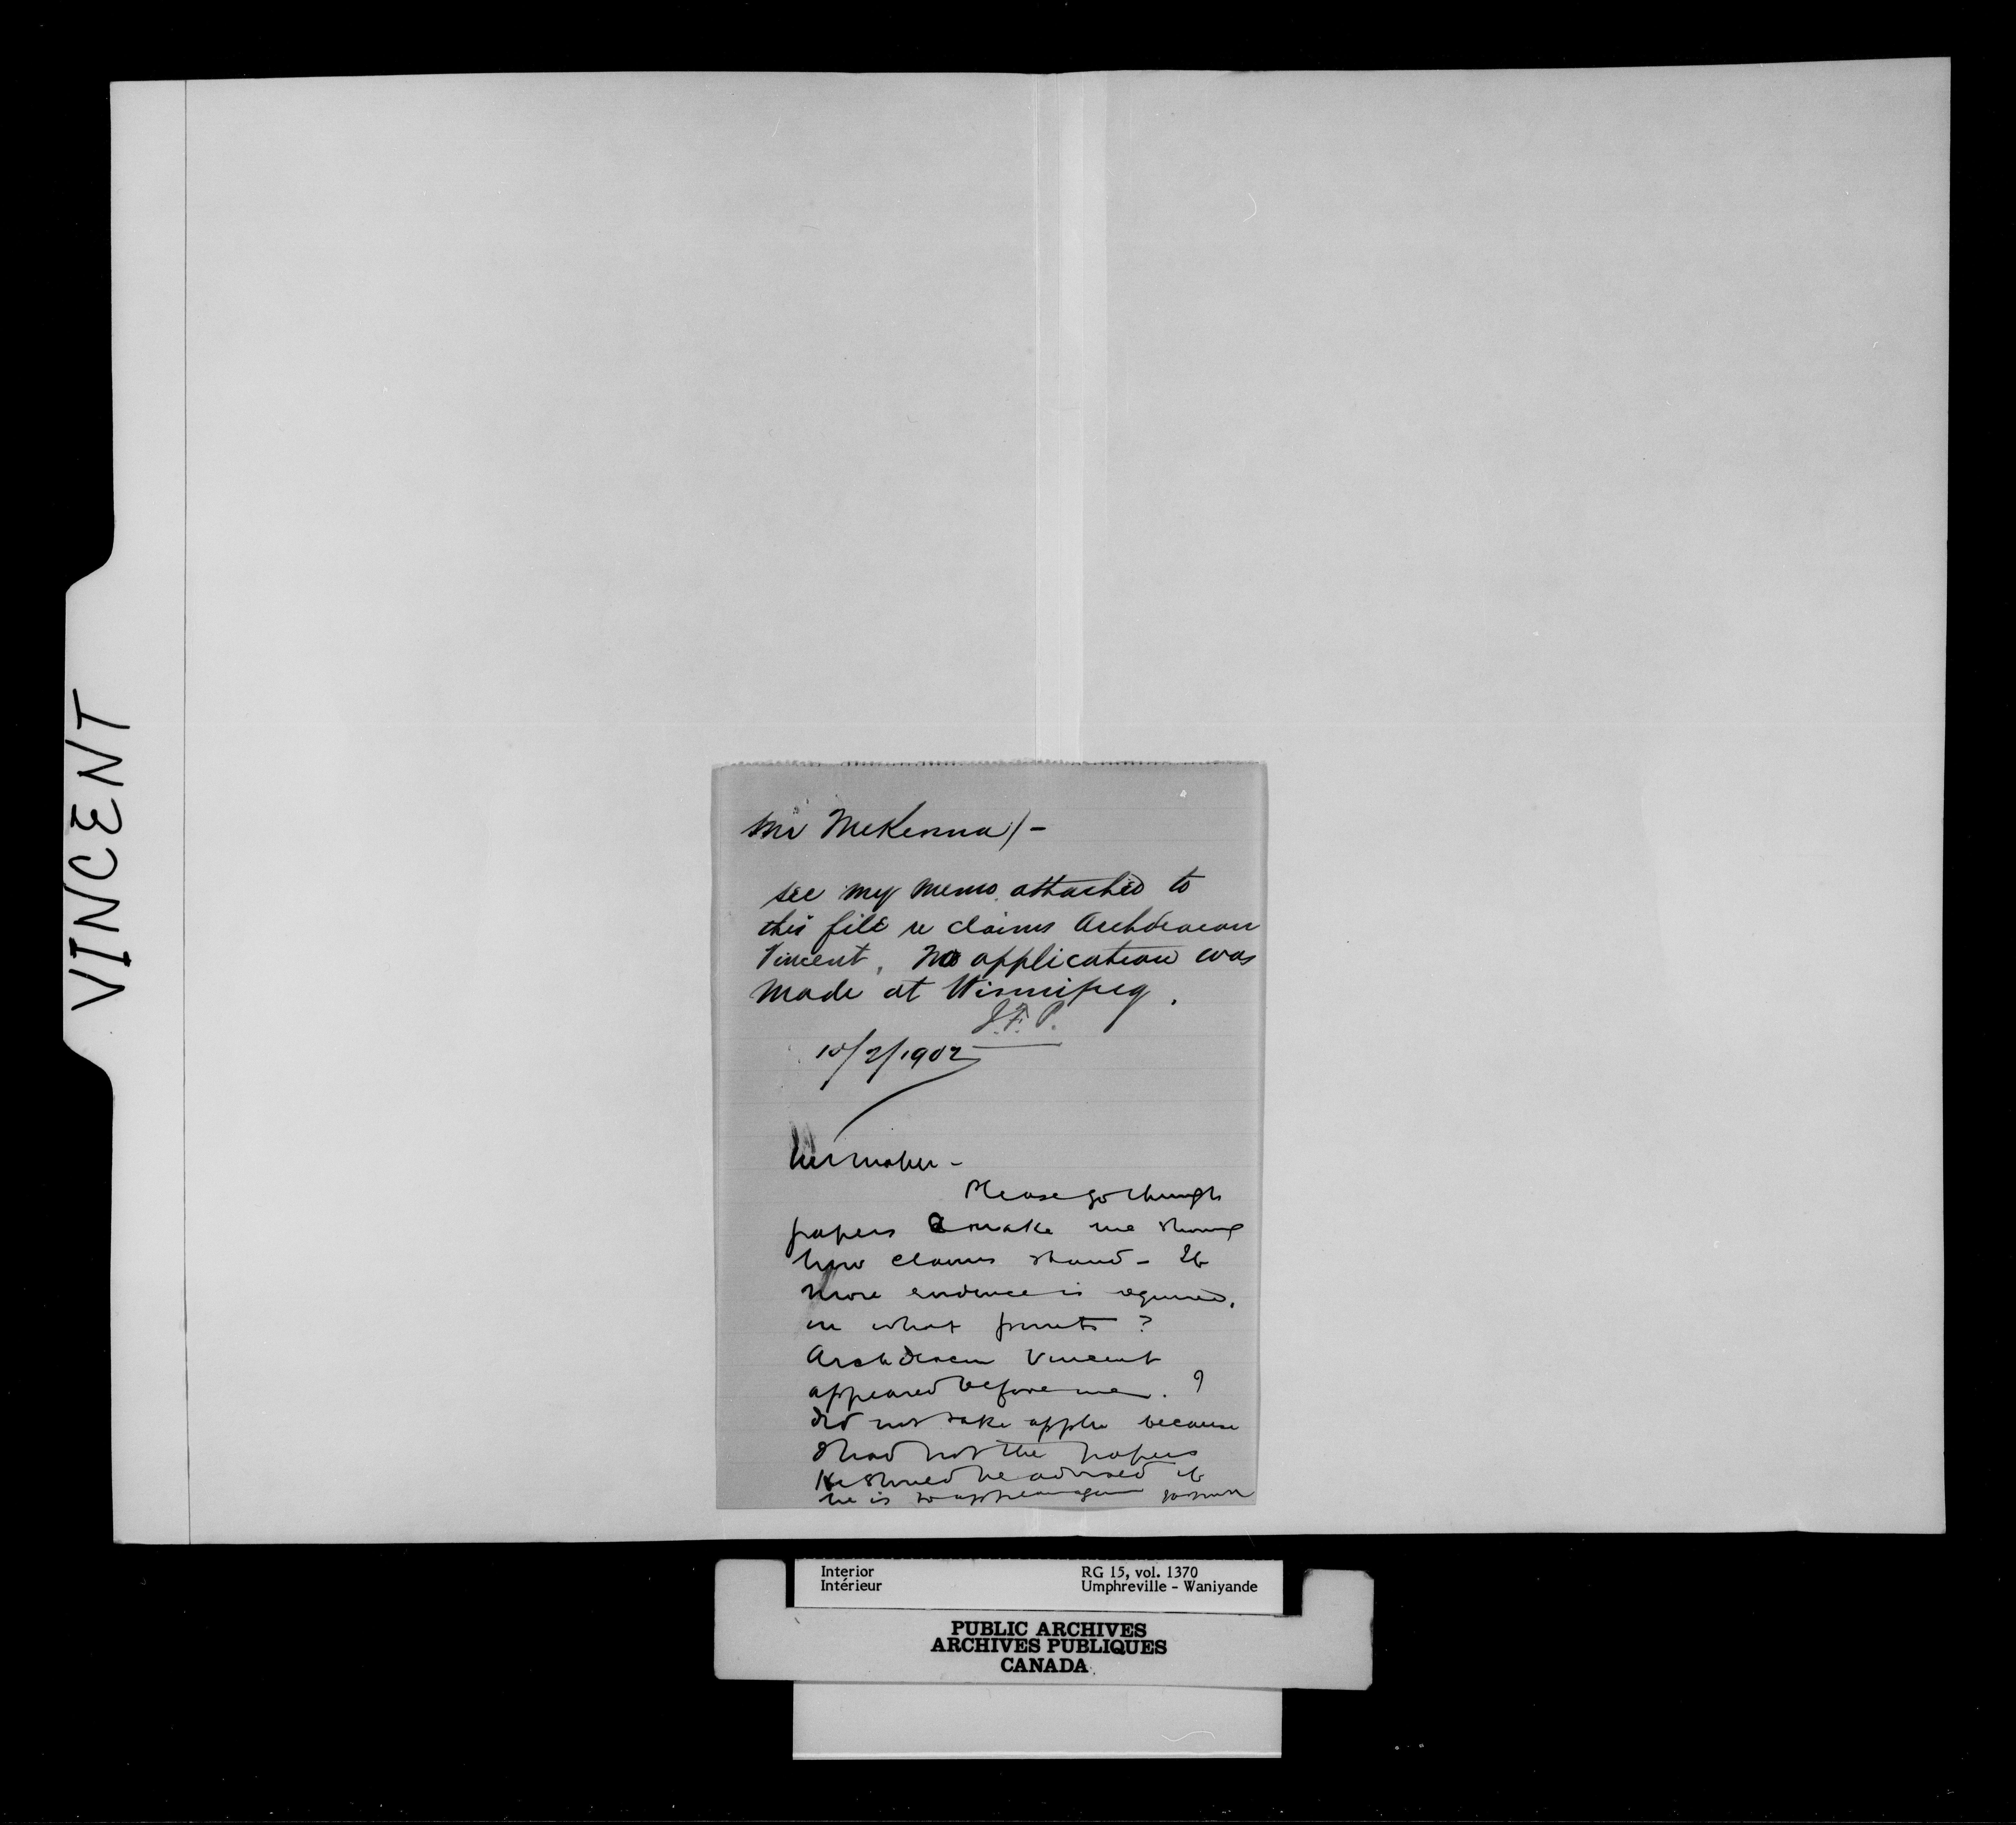 VINCENT
Mr McKenna/-
See my memo. attached to
this file re claims Archdeacon
Vincent. No application was
made at Winnipeg.
J.F.P.
10/2/1902
Please go through
papers & make me
how claims stand - If
more evidence is required,
on what points ?
Archdeacon Vincent
appeared before me. I
did not take appln because
I had not the papers
He should be advised if
he is to appear again
Interior
Intérieur
RG 15, vol. 1370
Umphreville - Waniyande
PUBLIC ARCHIVES
ARCHIVES PUBLIQUES
CANADA